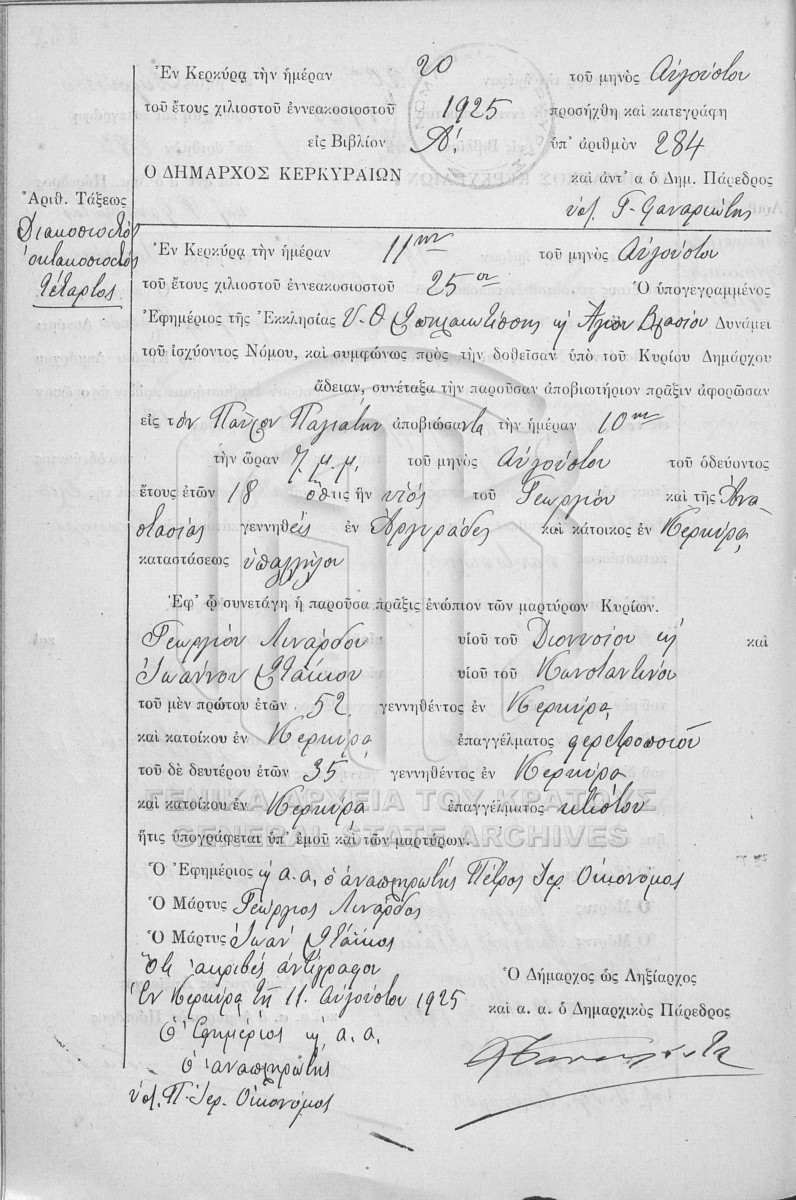 Ἐν Κερκύρᾳ τὴν ἡμέραν 20 τοῦ μηνὸς Αὐγούστου
τοῦ ἔτους χιλιοστοῦ ἐννεακοσιοστοῦ 1925 προσήχθη καὶ κατεγράφη
εἰς Βιβλίον Α! ὑπ' ἀριθμὸν 284
Ο ΔΗΜΑΡΧΟΣ ΚΕΡΚΥΡΑΙΩΝ καὶ ἀντ' α ὁ Δημ. Πάρεδρος
Γ. Φαναριώτης
Ἀριθ. Τάξεως
Διακοσιοστός
ὀκτακοσιοστός
τέταρτος
Ἐν Κερκύρᾳ τὴν ἡμέραν 11ην τοῦ μηνὸς Αὐγούστου
τοῦ ἔτους χιλιοστοῦ ἐννεακοσιοστοῦ 25ου Ὁ ὑπογεγραμμένος
Ἐφημέριος τῆς Ἐκκλησίας Υ. Θ. Σπηλαιωτίσσης κ Ἁγίου Βλασίου Δυνάμει
τοῦ ἰσχύοντος Νόμου, καὶ συμφώνως πρὸς τὴν δοθεῖσαν ὑπὸ τοῦ Κυρίου Δημάρχου
ἄδειαν, συνέταξα τὴν παροῦσαν ἀποβιωτήριον πρᾶξιν ἀφορῶσαν
εἰς τόν Παῦλον Παγιάτην ἀποβιώσαντα τὴν ἡμέραν 10ην
τὴν ὥραν 7 μ.μ. τοῦ μηνὸς Αὐγούστου τοῦ ὁδεύοντος
ἔτους ἐτῶν 18 ὅστις ἦν υἱός τοῦ Γεωργίου καὶ τῆς Ἀνα
στασίας γεννηθείς ἐν Ἀργυράδες καὶ κάτοικος ἐν Κερκύρᾳ
καταστάσεως ὑπαλλήλου
Ἐφ' ᾧ συνετάγη ἡ παροῦσα πρᾶξις ἐνώπιον τῶν μαρτύρων Κυρίων.
Γεωργίου Λινάρδου υἱοῦ τοῦ Διονυσίου κ καὶ
Ἰωάννου Στάϊκου υἱοῦ τοῦ Κωνσταντίνου
τοῦ μὲν πρώτου ἐτῶν 52 γεννηθέντος ἐν Κερκύρᾳ
καὶ κατοίκου ἐν Κερκύρᾳ ἐπαγγέλματος φερετροποιοῦ
τοῦ δὲ δευτέρου ἐτῶν 35 γεννηθέντος ἐν Κερκύρᾳ
καὶ κατοίκου ἐν Κερκύρᾳ ἐπαγγέλματος κτίστου
ΓΕΝΙΚΑ ΑΡΧΕΙΑ ΤΟΥ ΚΡΑΤΟΥΣ
GENERAL STATE ARCHIVES
ἥτις ὑπογράφεται ὑπ' ἐμοῦ καὶ τῶν μαρτύρων.
Ὁ Ἐφημέριος κ α.α. ὁ ἀναπληρωτής Πέτρος Ἱερ. Οἰκονόμος
Ὁ Μάρτυς Γεώργιος Λινάρδος
Ὁ Μάρτυς Ἰωάν Στάϊκος
Ὅτι ἀκριβές ἀντίγραφον
Ἐν Κερκύρᾳ τῇ 11 Αὐγούστου 1925
Ὁ Ἐφημέριος κ α.α.
ὁ ἀναπληρωτής
Π. Ἱερ. Οἰκονόμος
Ὁ Δήμαρχος ὡς Ληξίαρχος
καὶ α. α. ὁ Δημαρχικὸς Πάρεδρος